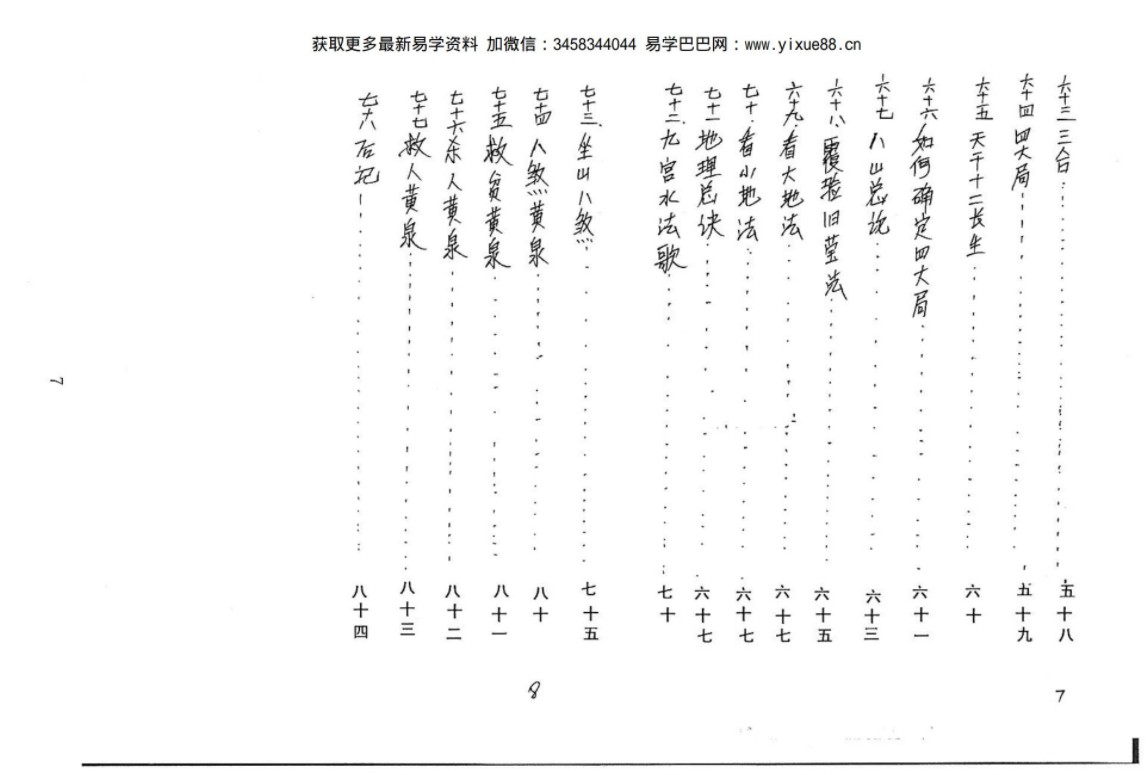 获取更多最新易学资料 加微信：3458344044 易学巴巴网：www.yixue88.cn
六十三 三合 五十八
六十四 四大局 五十九
六十五 天干十二长生 六十
六十六 如何确定四大局 六十一
六十七 八山总说 六十三
六十八 覆验旧茔法 六十五
六十九 看大地法 六十七
七十 看小地法 六十七
七十一 地理总诀 六十七
七十二 九宫水法歌 七十
7
七十三 坐山八煞 七十五
七十四 八煞黄泉 八十
七十五 救贫黄泉 八十一
七十六 杀人黄泉 八十二
七十七 救人黄泉 八十三
七十八 后记 八十四
8
7